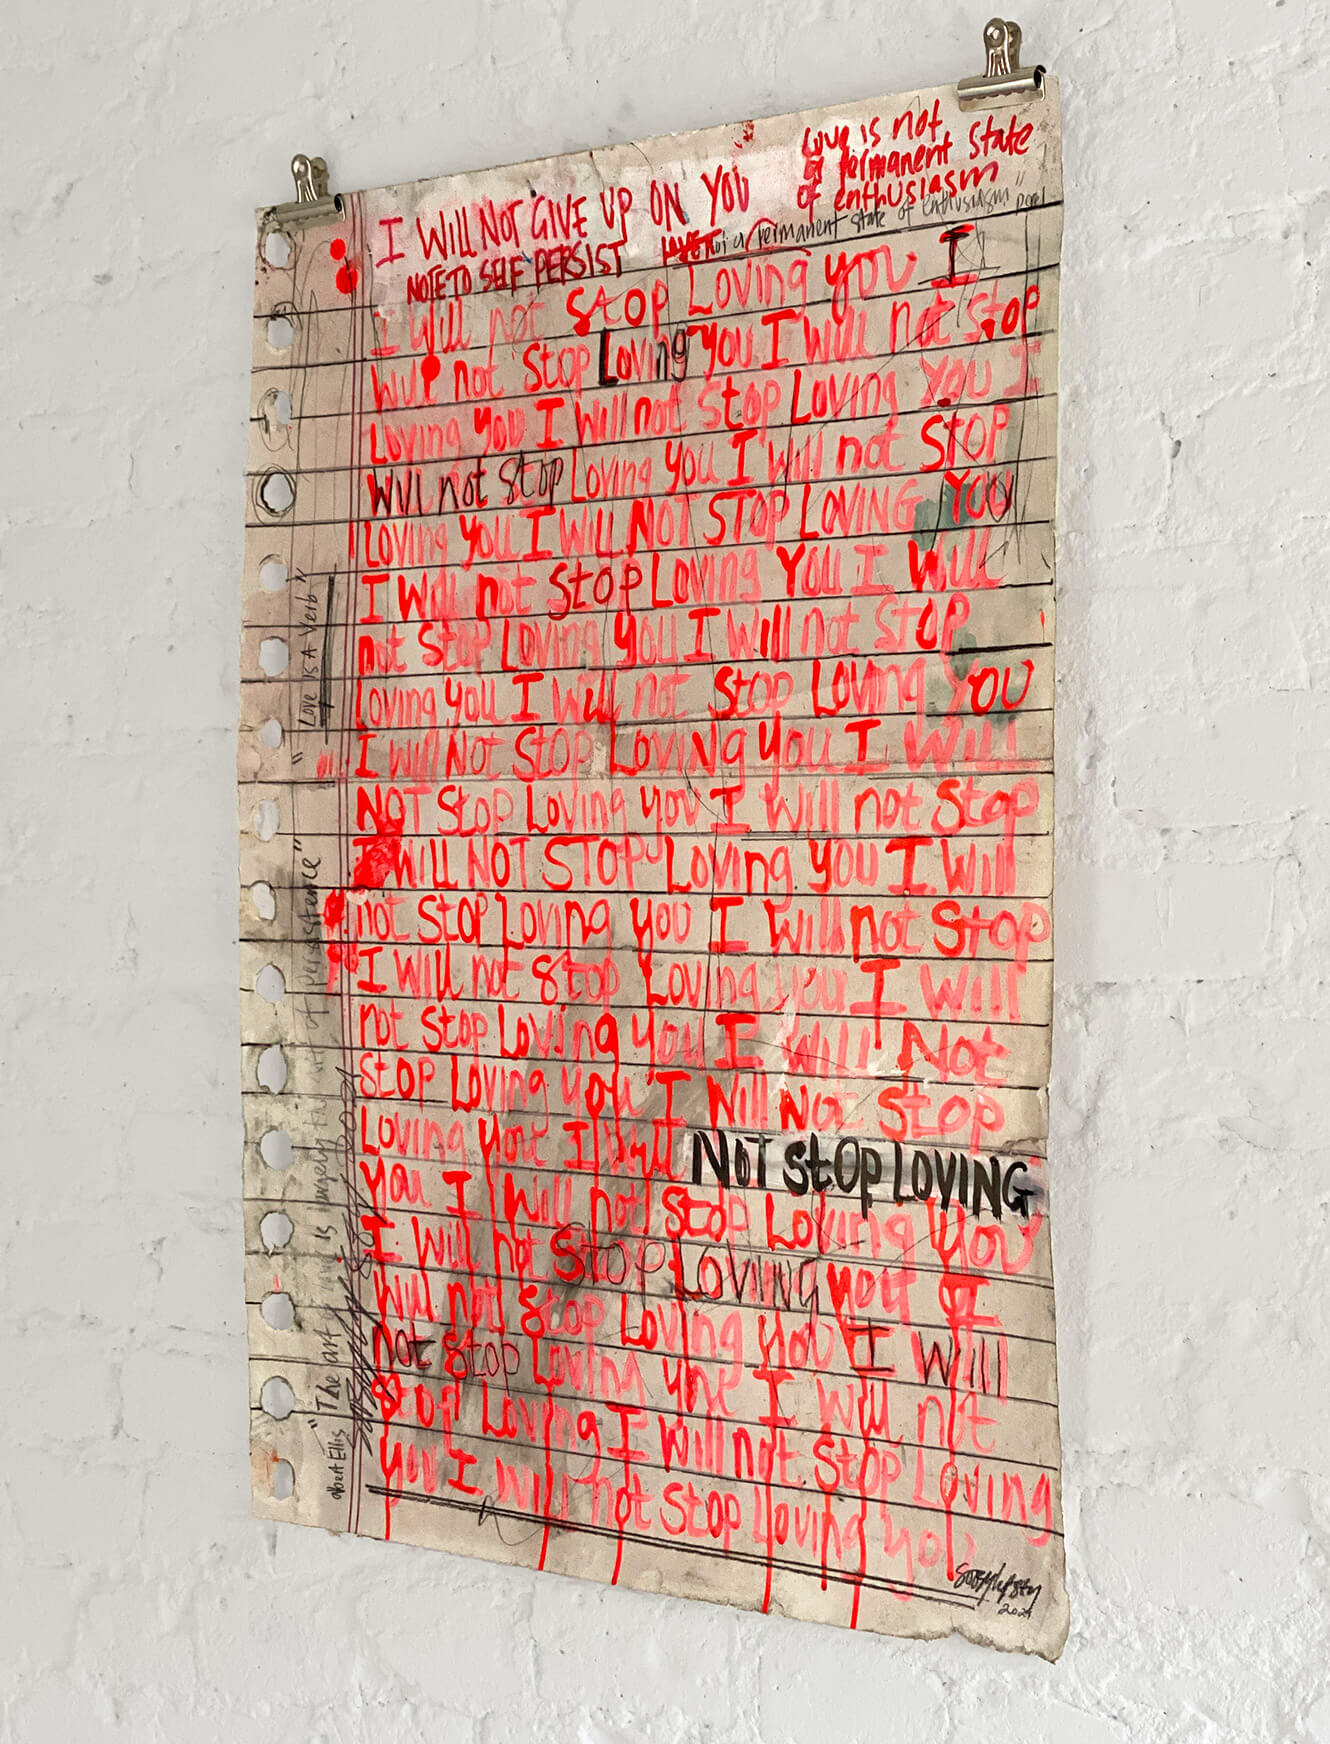 Love is not
a permanent state
of enthusiasm
I WILL NOT GIVE UP ON YOU
NOTE TO SELF PERSIST
LOVE not a permanent state of enthusiasm"
I will not stop Loving you I
will not stop Loving you I will not stop
Loving you I will not stop Loving you I
Will not stop Loving you I will not STOP
Loving you I WILL NOT STOP LOVING YOU
I Will not STOP Loving You I Will
not STOP Loving you I will not STOP
Loving you I will not Stop Loving YOU
I will Not STOP LOVINg you I Will
NOT Stop Loving you I will not Stop
I WILL NOT STOP Loving you I will
not STOP Loving you I will not Stop
I will not Stop Loving you I will
not Stop Loving you I will Not
STOP Loving you I Will Not Stop
Loving you I will NOT StOp LOVING
you I will not Stop Loving you
I will not STOP LOVING you I
will not Stop Loving you I Will
not Stop Loving you I will not
Stop Loving I will not Stop Loving
you I will not Stop Loving you
2024
"Love is A Verb"
"The art of is largely the of persistence"
albert Ellis